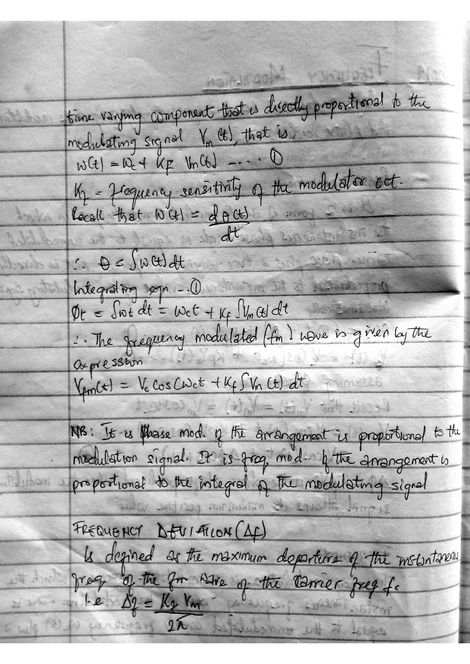 time varying component that is directly proportional to the
modulating signal Vm (t), that is,
w(t) = wc + Kf Vm(t) ---- ①
Kf = frequency sensitivity of the modulator cct.
Recall that w(t) = dθ(t)
dt
∴ θ = ∫w(t)dt
Integrating eqn --①
Øt = ∫wt dt = wct + Kf ∫Vm(t) dt
∴ The frequency modulated (fm) wave is given by the
expression
Vfm(t) = Vc Cos(wct + Kf ∫Vm(t) dt
NB: It is phase mod. if the arrangement is proportional to the
modulation signal. It is freq, mod. if the arrangement is
proportional to the integral of the modulating signal
FREQUENCY DEVIATION (Δf)
Is defined as the maximum departure of the instantaneous
freq of the fm wave of the carrier freq fc
i.e Δf = Kf Vm
2π